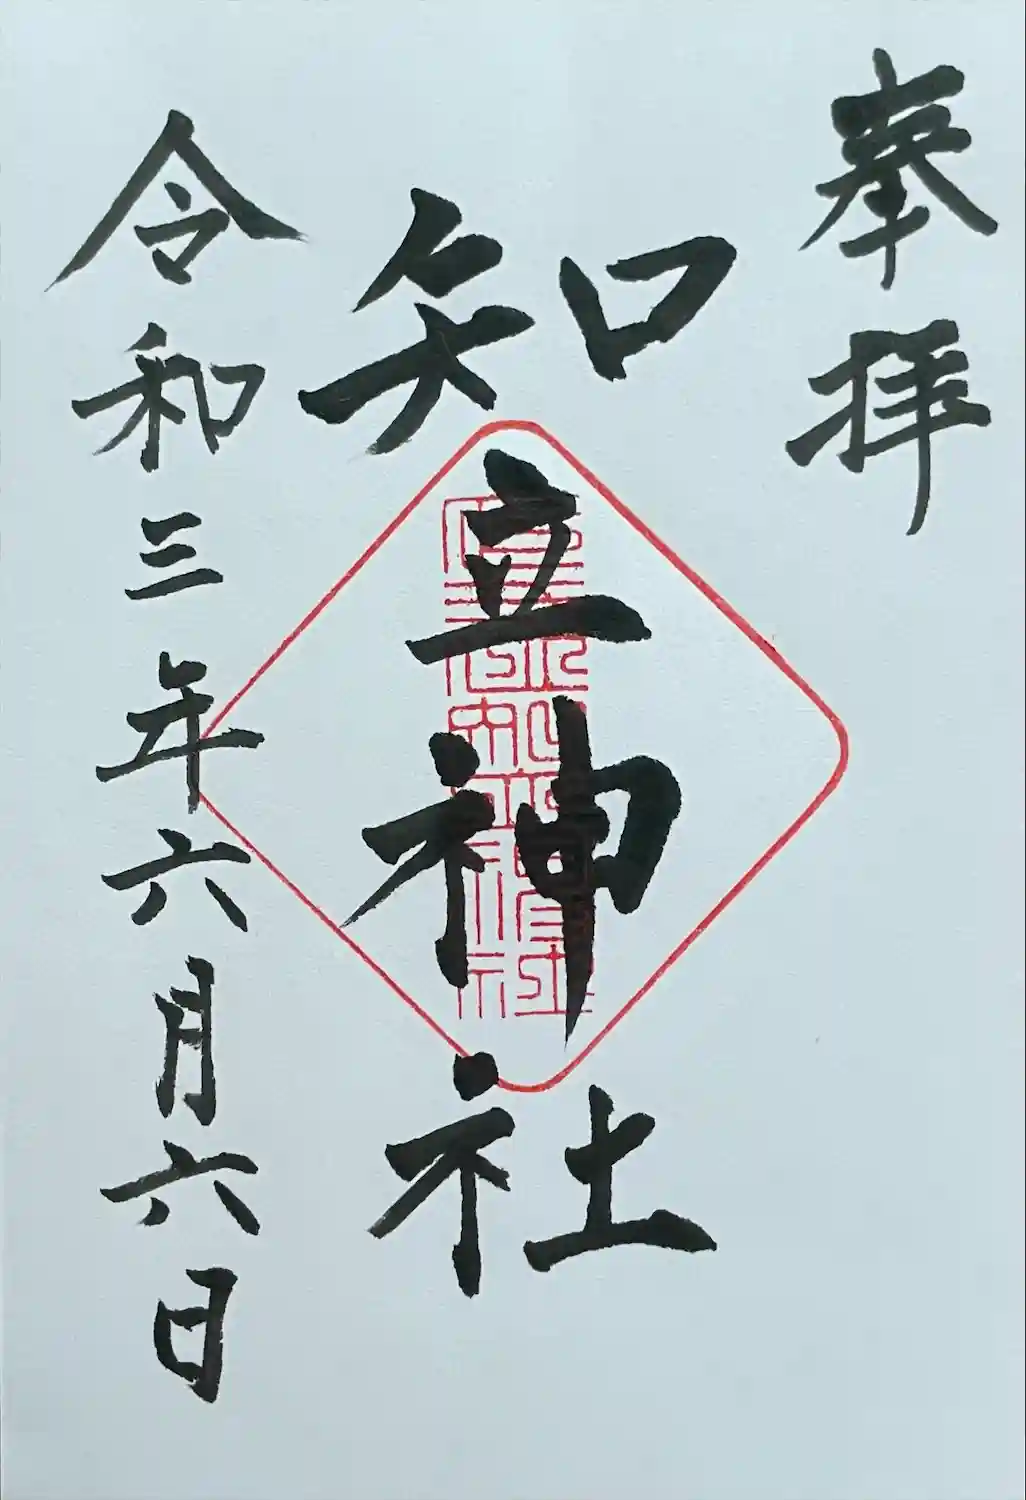 奉拝
知立神社
令和三年六月六日